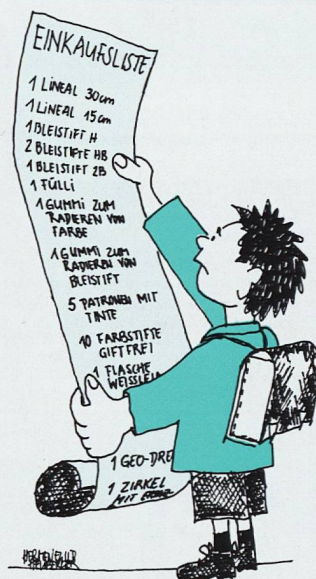 EINKAUFSLISTE
1 LINEAL 30cm
1 LINEAL 15cm
1 BLEISTIFT H
2 BLEISTIFTE HB
1 BLEISTIFT 2B
1 FÜLLI
1 GUMMI ZUM
RADIEREN VON
FARBE
1 GUMMI ZUM
RADIEREN VON
BLEISTIFT
5 PATRONEN MIT
TINTE
10 FARBSTIFTE
GIFTFREI
1 FLASCHE
WEISSLEIM
1 GEO-DRE
1 ZIRKEL
MIT